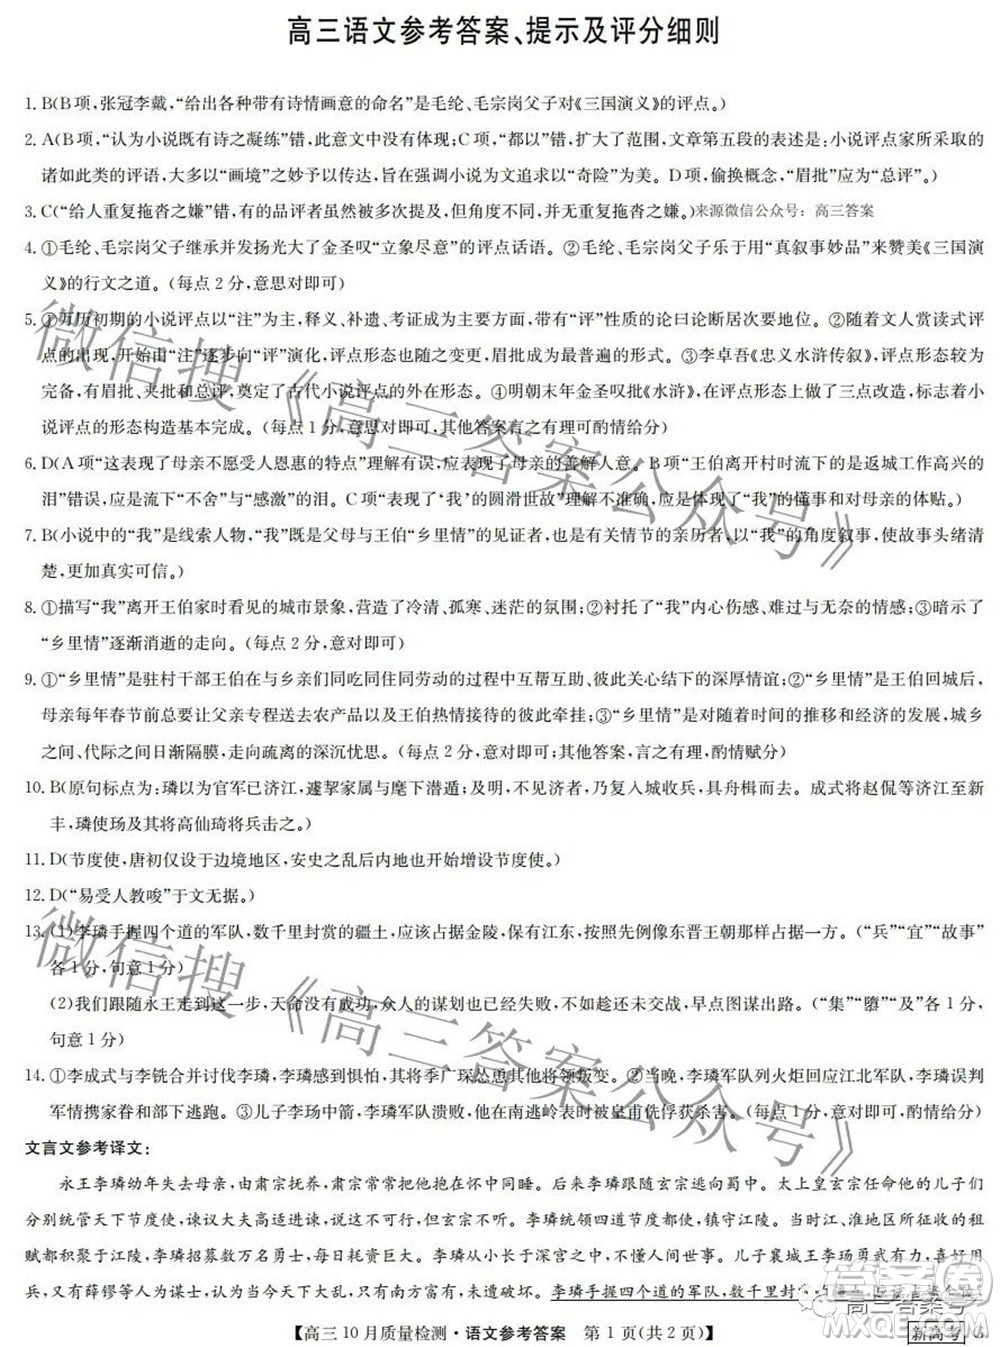 高三语文参考答案、提示及评分细则
1. B(B项,张冠李戴,“给出各种带有诗情画意的命名”是毛纶、毛宗岗父子对《三国演义》的评点。)
2. A(B项,“认为小说既有诗之凝练”错,此意文中没有体现;C项,“都以”错,扩大了范围,文章第五段的表述是:小说评点家所采取的
诸如此类的评语,大多以“画境”之妙予以传达,旨在强调小说为文追求以“奇险”为美。D项,偷换概念,“眉批”应为“总评”。)
3. C(“给人重复拖沓之嫌”错,有的品评者虽然被多次提及,但角度不同,并无重复拖沓之嫌。)来源微信公众号：高三答案
4. ①毛纶、毛宗岗父子继承并发扬光大了金圣叹“立象尽意”的评点话语。②毛纶、毛宗岗父子乐于用“真叙事妙品”来赞美《三国演
义》的行文之道。(每点2分,意思对即可)
5. ①万历初期的小说评点以“注”为主,释义、补遗、考证成为主要方面,带有“评”性质的论曰论断居次要地位。②随着文人赏读式评
点的出现,开始由“注”逐步向“评”演化,评点形态也随之变化,眉批成为最普遍的形式。③李卓吾《忠义水浒传叙》,评点形态较为
完备,有眉批、夹批和总评,奠定了古代小说评点的外在形态。④明朝末年金圣叹批《水浒》,在评点形态上做了三点改造,标志着小
说评点的形态构造基本完成。(每点1分,意思对即可,其他答案言之有理可酌情给分)
6. D(A项“这表现了母亲不愿受人恩惠的特点”理解有误,应是表现了母亲的善解人意。B项“王伯离开村时流下的是返城工作高兴的
泪”错误,应是流下“不舍”与“感激”的泪。C项“表现了‘我’的圆滑世故”理解不准确,应是表现了“我”的懂事和对母亲的体贴。)
7. B(小说中的“我”是线索人物,“我”既是父母与王伯“乡里情”的见证者,也是有关情节的亲历者,以“我”的角度叙事,使故事头绪清
楚,更加真实可信。)
8. ①描写“我”离开王伯家时看见的城市景象,营造了冷清、孤寒、迷茫的氛围;②衬托了“我”内心伤感、难过与无奈的情感;③暗示了
“乡里情”逐渐消逝的走向。(每点2分,意对即可)
9. ①“乡里情”是驻村干部王伯在与乡亲们同吃同住同劳动的过程中互帮互助、彼此关心结下的深厚情谊;②“乡里情”是王伯回城后,
母亲每年春节前总要让父亲专程送去农产品以及王伯热情接待的彼此牵挂;③“乡里情”是对随着时间的推移和经济的发展,城乡
之间、代际之间日渐隔膜,走向疏离的深沉忧思。(每点2分,意对即可;其他答案,言之有理,酌情赋分)
10. B(原句标点为:璘以为官军已济江,遽挈家属与麾下潜遁;及明,不见济者,乃复入城收兵,具舟楫而去。成式将赵侃等济江至新
丰,璘使玚及其将高仙琦将兵击之。)
11. D(节度使,唐初仅设于边境地区,安史之乱后内地也开始增设节度使。)
12. D(“易受人教唆”于文无据。)
13. (1)李璘手握四个道的军队,数千里封赏的疆土,应该占据金陵,保有江东,按照先例像东晋王朝那样占据一方。(“兵”“宜”“故事”
各1分,句意1分)
(2)我们跟随永王走到这一步,天命没有成功,众人的谋划也已经失败,不如趁还未交战,早点图谋出路。(“集”“隳”“及”各1分,
句意1分)
14. ①李成式与李铣合并讨伐李璘,李璘感到惧怕,其将季广琛怂恿其他将领叛变。②当晚,李璘军队列火炬回应江北军队,李璘误判
军情携家眷和部下逃跑。③儿子李玚中箭,李璘军队溃败,他在南逃岭表时被皇甫侁俘获杀害。(每点1分,意对即可,酌情给分)
文言文参考译文：
永王李璘幼年失去母亲,由肃宗抚养,肃宗经常抱着他在怀中同睡。后来李璘跟随玄宗逃向蜀中。太上皇玄宗任命他的儿子们
分别统管天下节度使,谏议大夫高适进谏,说不可行,但玄宗不听。李璘统领四道节度都使,镇守江陵。当时江、淮地区所征收的租
赋都积聚于江陵,李璘招募数万名勇士,每日耗资巨大。李璘从小长于深宫之中,不懂人间世事。儿子襄城王李玚勇武有力,喜好用
兵,又有薛镠等人为谋士,认为当今天下大乱,只有南方富有,未遭破坏。李璘手握四个道的军队,数千里封
【高三10月质量检测·语文参考答案 第1页(共2页)】
新高考
微信搜《高三答案公众号》
微信搜《高三答案公众号》
高三答案号
答案圈